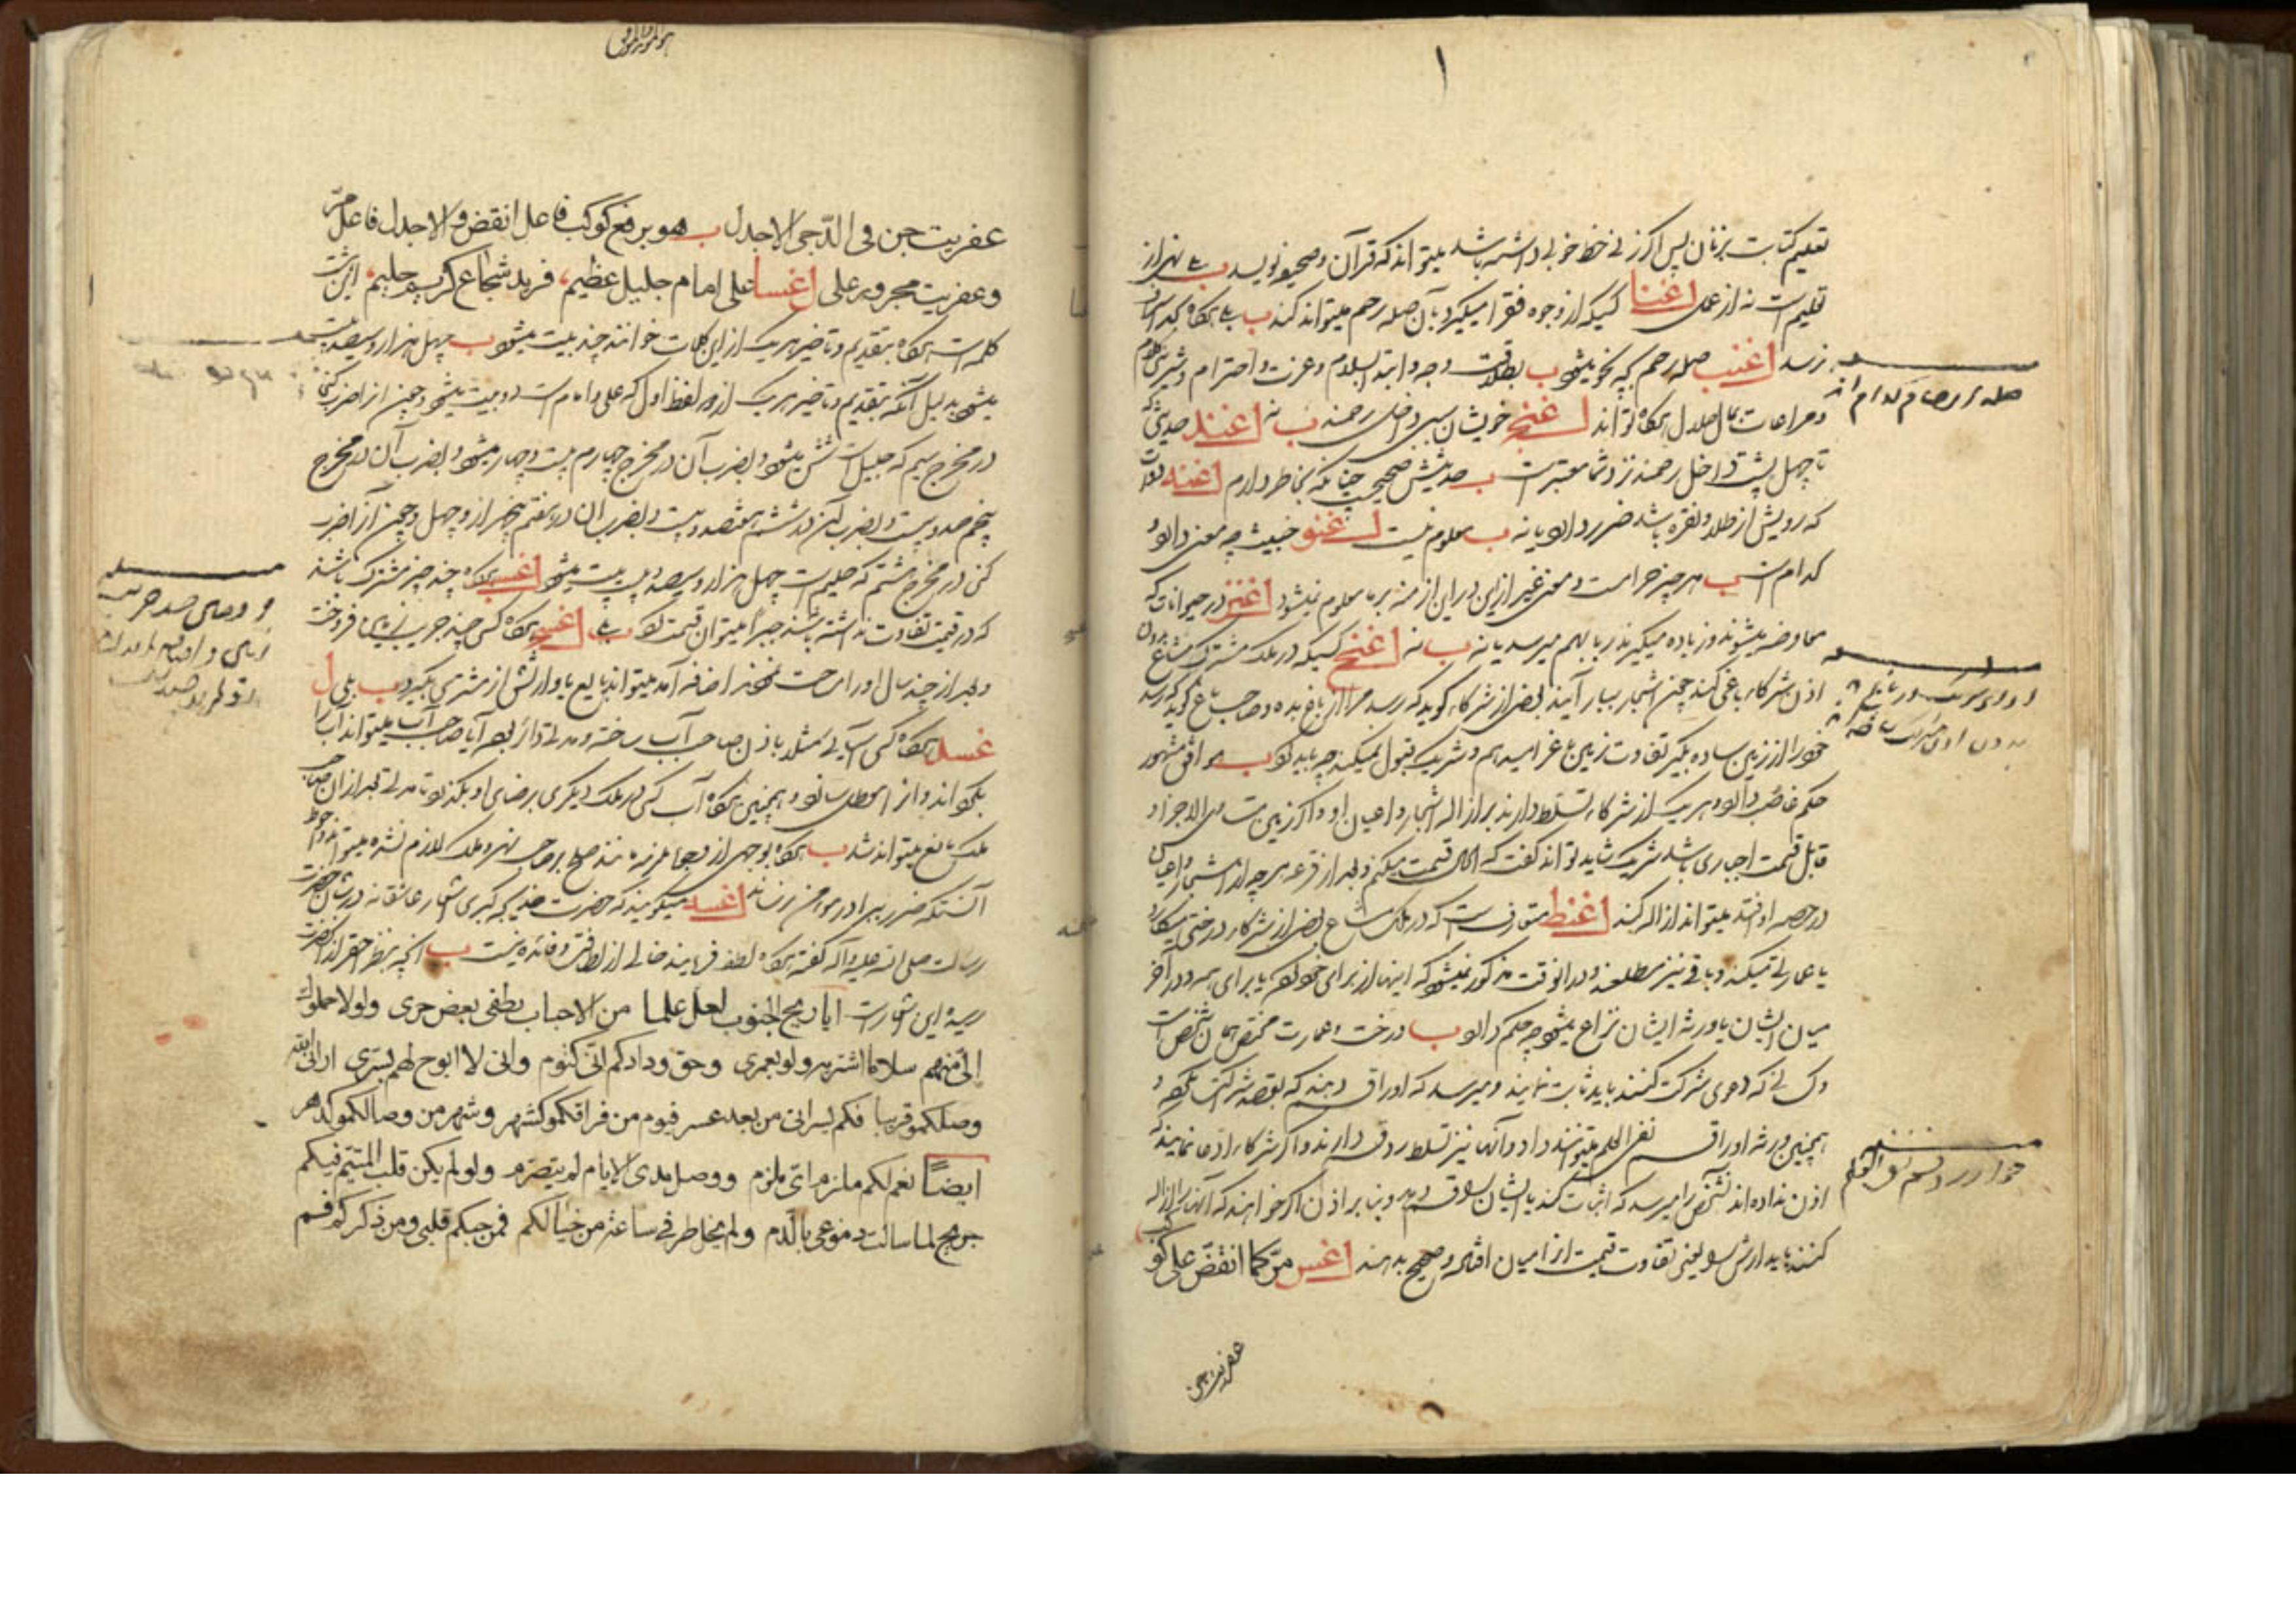 تعلیم کتابت بزنان پس اگر زنی خط خوبی داشته باشد میتواند که قرآن و صحیفه نویسد ب بلی نهی از
تعلیم است نه از عمل اغنا کسیکه از وجوه فقرا میگیرد بآن صله رحم میتواند کند ب بلی هرگاه بحد اسراف
نرسد اغنب صله رحم بچه نحو میشود ب بطلاقت وجه و ابتدا بسلام و عزت و احترام و شیرین کلام
و مراعات بمال حلال هرگاه تواند اغنج خویشان سببی داخل رحمند ب نه اغند حدیثی که
تا چهل پشت داخل رحمند نزد شما معتبر است ب حدیثش صحیح چنانکه بخاطر دارم اغنه
که رویش از طلا و نقره باشد ضرر دارد یا نه ب معلوم نیست اغنو خبیث چه معنی دارد و
کدام است ب هر چیز حرامست و معنی غیر از این در این ازمنه بر ما معلوم نمیشود اغنز در حیوانات که
معاوضه میشوند و زیاده میگیرند ربا بهم میرسد یا نه ب نه اغنح کسیکه در ملک مشترک مشاع بدون
اذن شرکاء باغی کند چون اشجار ببار آیند بعضی از شرکاء گوید که رسد مرا از باغ بده و صاحب باغ گوید که رسد
خود را از زمین ساده بگیر تفاوت زمین غرامیدهم و شریک قبول نمیکند چه باید کرد ب موافق مشهور
حکم غاصب دارد و هر یک از شرکاء تسلط دارند بر ازاله اشجار و اعیان او و اگر زمین متساوی الاجزاء و
قابل قسمت اجباری باشد شریک شاید تواند گفت که اول قسمت میکنم و بعد از قرعه هر چه از اشجار و اعیان
در حصه او افتد میتواند ازاله کند اغنط متعارفست که در ملک مشاع بعضی از شرکاء درختی میکارد
یا عمارتی میکند و باقی نیز مطلعند و در آنوقت مذکور نمیشود که اینها از برای خود اوست یا برای همه و در آخر
میان ایشان یا ورثه ایشان نزاع میشود چه حکم دارد ب درخت و عمارت مختص همان شخص است
و کسانی که دعوی شرکت کنند باید ثابت نمایند و میرسد که او را قسم دهند که بقصد شرکت نکرده و
همچنین ورثه او را قسم نفی العلم میتوانند داد و آنها نیز تسلط رد قسم دارند و اگر شرکاء ادعا نمایند که
اذن نداده اند آن شخص را میرسد که اثبات کند یا ایشان را قسم دهد و بنا بر اذن اگر خواهند که آنها را ازاله
کنند باید ارش او یعنی تفاوت قیمت از میان افتاده و صحیح بدهند اغس مرّ کما انقضّ علی کو
کب
عفریت جن
صله ارحام کدام اند
عفریت جن فی الدّجی الاجدل ب هو برفع کوکب فاعل انقض و الاجدل فاعل مرّ
و عفریت مجرور علی اغسا علی امام جلیل عظیم، فرید شجاع کریم حلیم، این هشت
کلمه است هرگاه بتقدیم و تاخیر هر یک از این کلمات خوانند چند بیت میشود ب چهل هزار و سیصد و بیست
میشود بدلیل آنکه بتقدیم و تاخیر هر یک از دو لفظ اول که علی و امام است دو بیت میشود و چون از ضرب کنی
در مخرج سیم که جلیل است شش میشود و بضرب آن در مخرج چهارم بیست و چهار میشود و بضرب آن در مخرج
پنجم صد و بیست و بضرب آن در ششم هفتصد و بیست و بضرب آن در هفتم پنجهزار و چهل و چون آنرا ضرب
کنی در مخرج هشتم که حلیم است چهل هزار و سیصد و بیست بیت میشود اغسب هرگاه چند چیز مشترک باشند
که در قیمت تفاوت نداشته باشند جبرا میتوان قسمت کرد ب بلی اغسج هرگاه کسی چند جریب زمین فروخت
و بعد از چند سال او را مساحت نمودند اضافه آمد میتواند بایع یا وارثش از مشتری بگیرد ب بلی ا
غسد هرگاه کسی آسیائی مثلا باذن صاحب آب ساخته و مدتی دائر بوده آیا صاحب آب میتواند آب را
بگرداند و از او معطل سازد و همچنین هرگاه آب کسی در ملک دیگری برضای او بگذرد تا مدتی بعد از آن صاحب
ملک مانع میتواند شد ب هرگاه بوجهی از وجوه ملزمه مانند صلح بر صاحب نهر و ملک لازم نشده میتواند و احوط
آنستکه ضرر ببرادر مؤمن نرساند اغسه میگویند که حضرت خدیجه کبری اشعار عاشقانه در شان حضرت
رسالت صلی الله علیه و آله گفته هرگاه لطف فرمایند خالی از لطفی و فائده نیست ب آنچه بنظر احقر از آنحضرت
رسیده این اشعار است ایا ریح الجنوب لعل علما من الاحباب یطفی بعض حری ولولا حملوک
الی منهم سلاما اشتریه ولو بعمری وحق ودادکم انی کتوم وانی لا ابوح لهم بسری ارانی الله
وصلکمو قریبا فکم یسر اتی من بعد عسر فیوم من فراقکمو کشهر وشهر من وصالکمو کدهر
ایضاً نعم لکم ملزم ای ملزم ووصل مدی الایام لم یتصرم ولو لم یکن قلب المتیم فیکم
جریح لما سالت دموعی بالدم ولم یخل طرفی ساعة من خیالکم فمن حبکم قلبی ومن ذکرکم فم